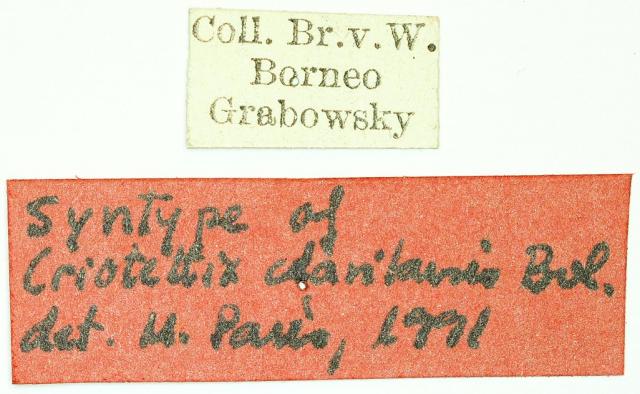 Coll. Br. v. W.
Borneo
Grabowsky
Syntype of
Criotettix Bol.
det. M. Paris, 1991